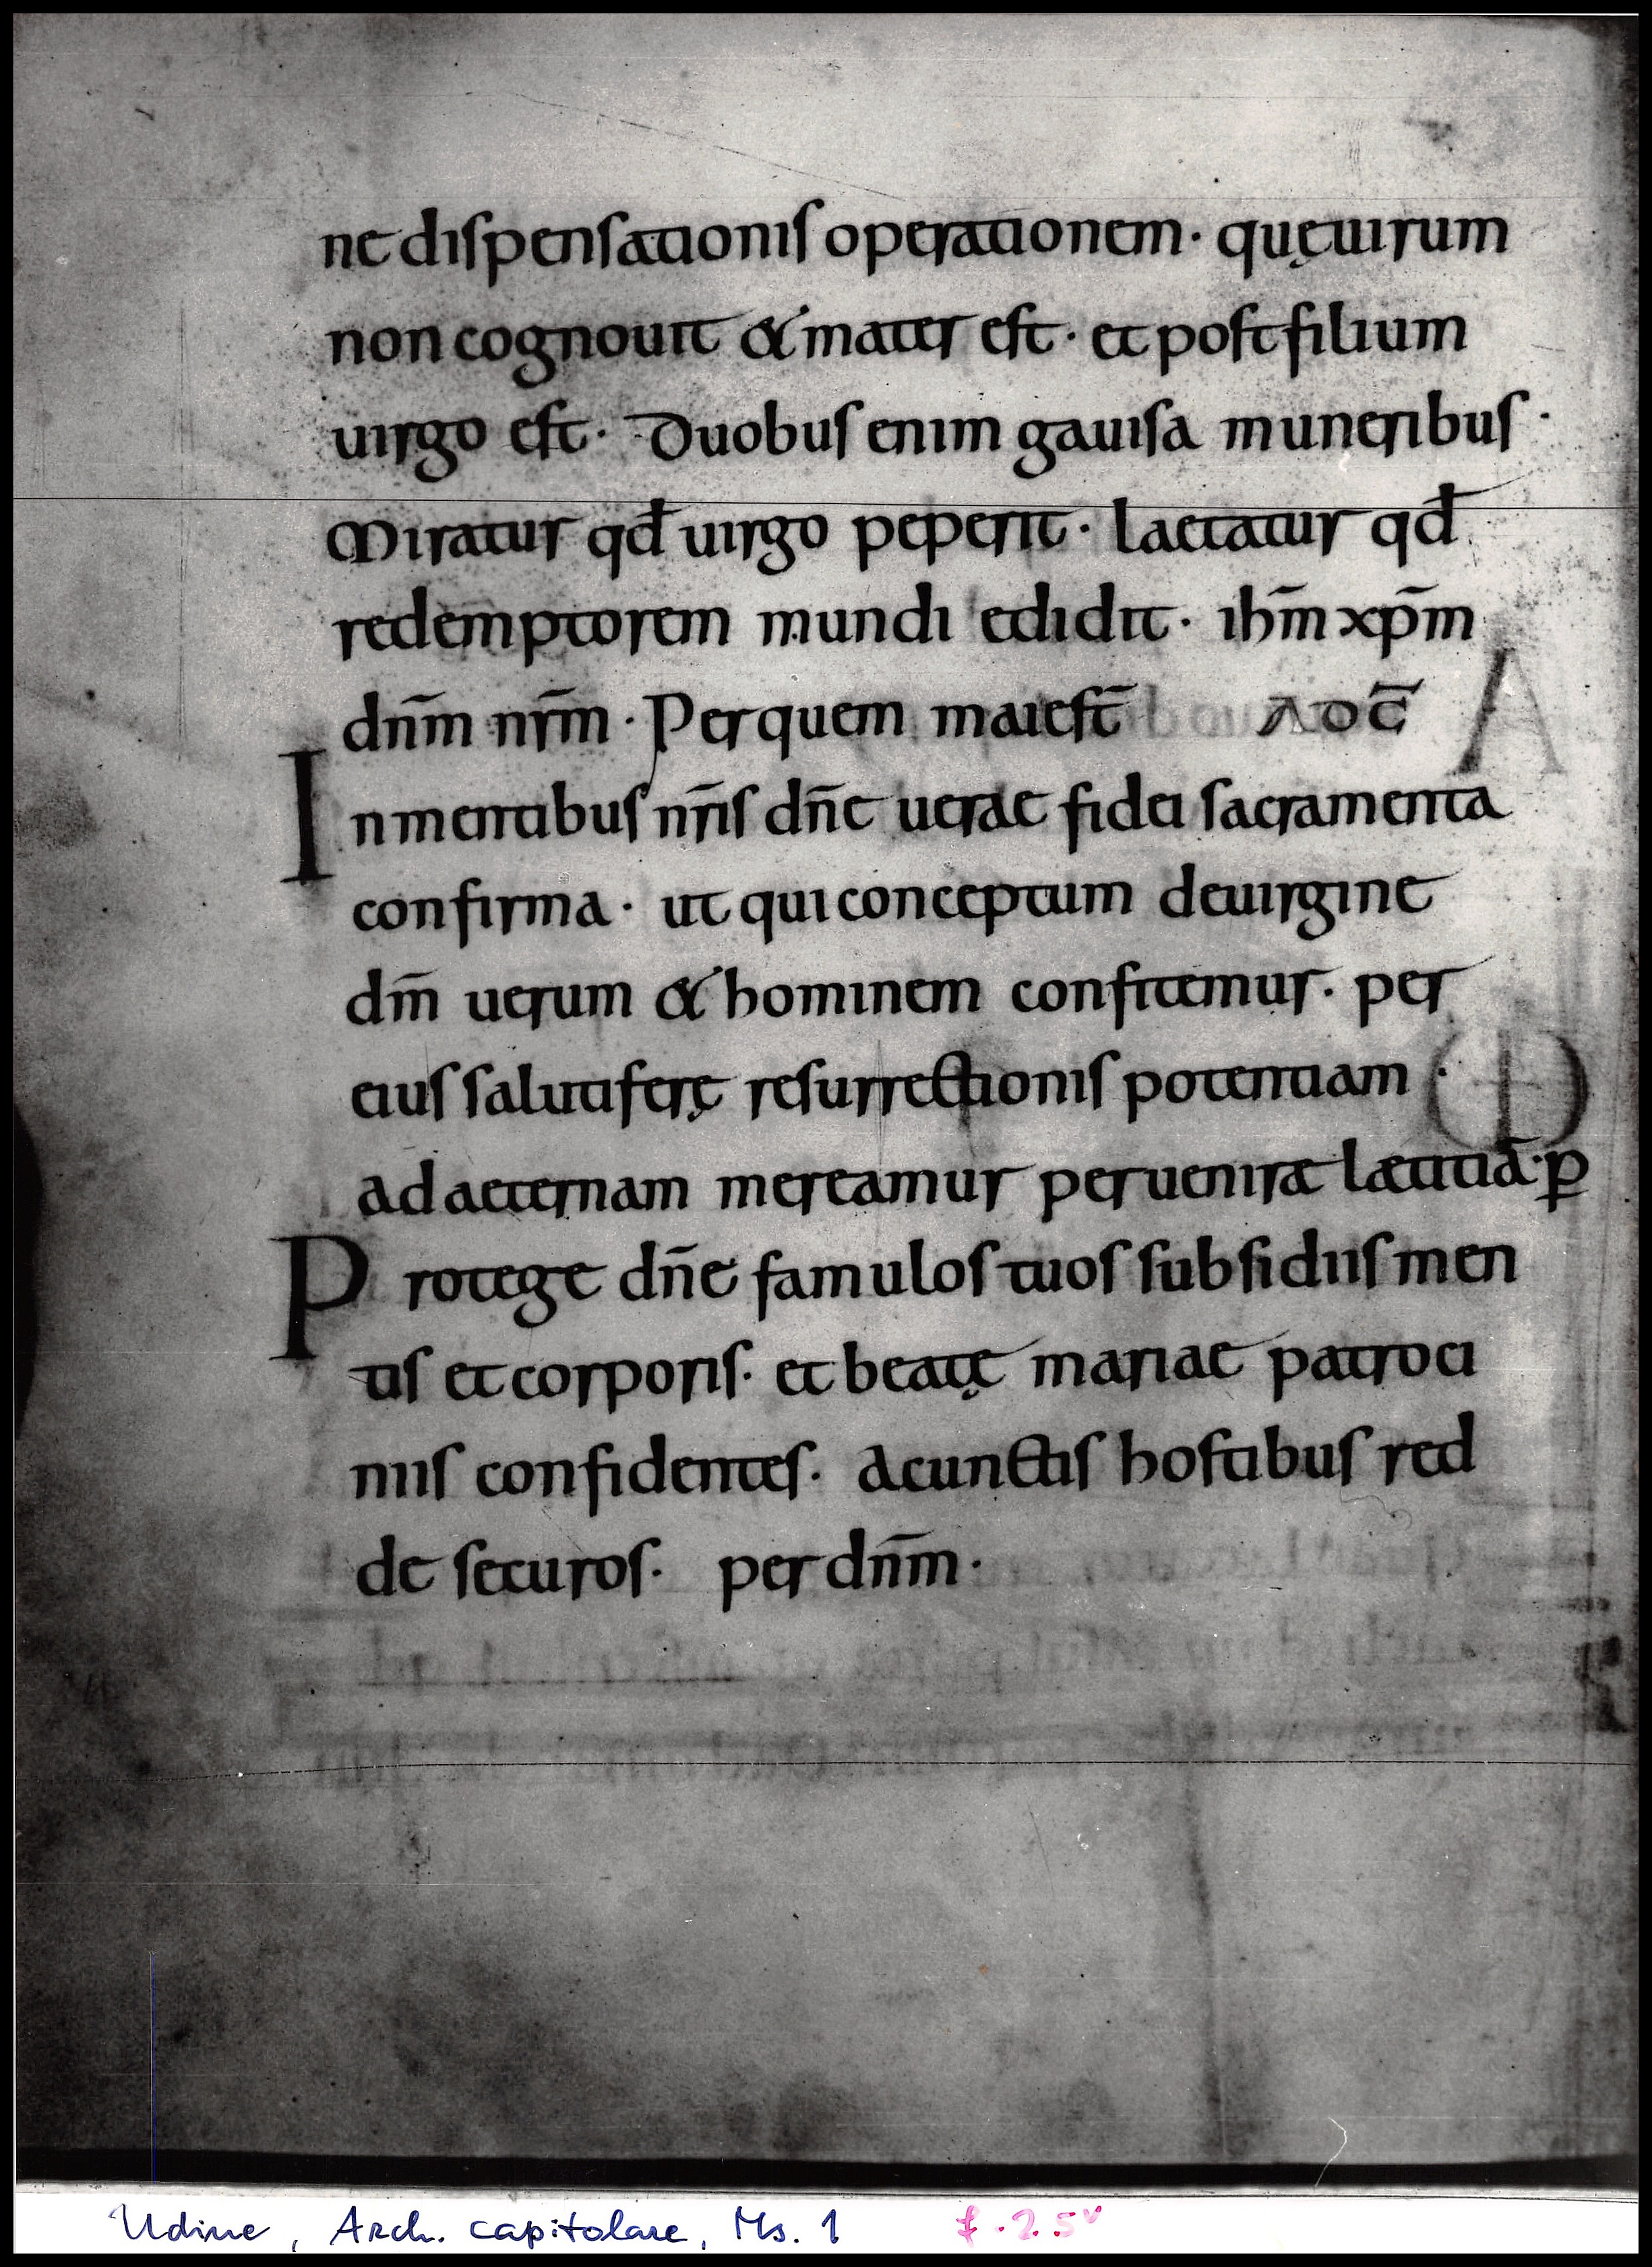 ne dispensationis operationem· quę uirum
non cognouit & mater est· et post filium
uirgo est· Duobus enim gauisa muneribus·
Miratur qđ uirgo peperit· laetatur qđ
redemptorem mundi edidit· ihm̄ xp̄m
dn̄m nr̄m· Per quem maiest̄ AD C̄
In mentibus nr̄is dn̄e uerae fidei sacramenta
confirma· ut qui conceptum de uirgine
dm̄ uerum & hominem confitemur· per
eius salutiferę resurrectionis potentiam·
ad aeternam mereamur peruenire lætitiā· ꝑ
Protege dn̄e famulos tuos subsidiis men
tis et corporis· et beatę mariae patroci
niis confidentes· a cunctis hostibus red
de securos· per dn̄m·
Udine, Arch. capitolare, Ms. 1 f. 25v